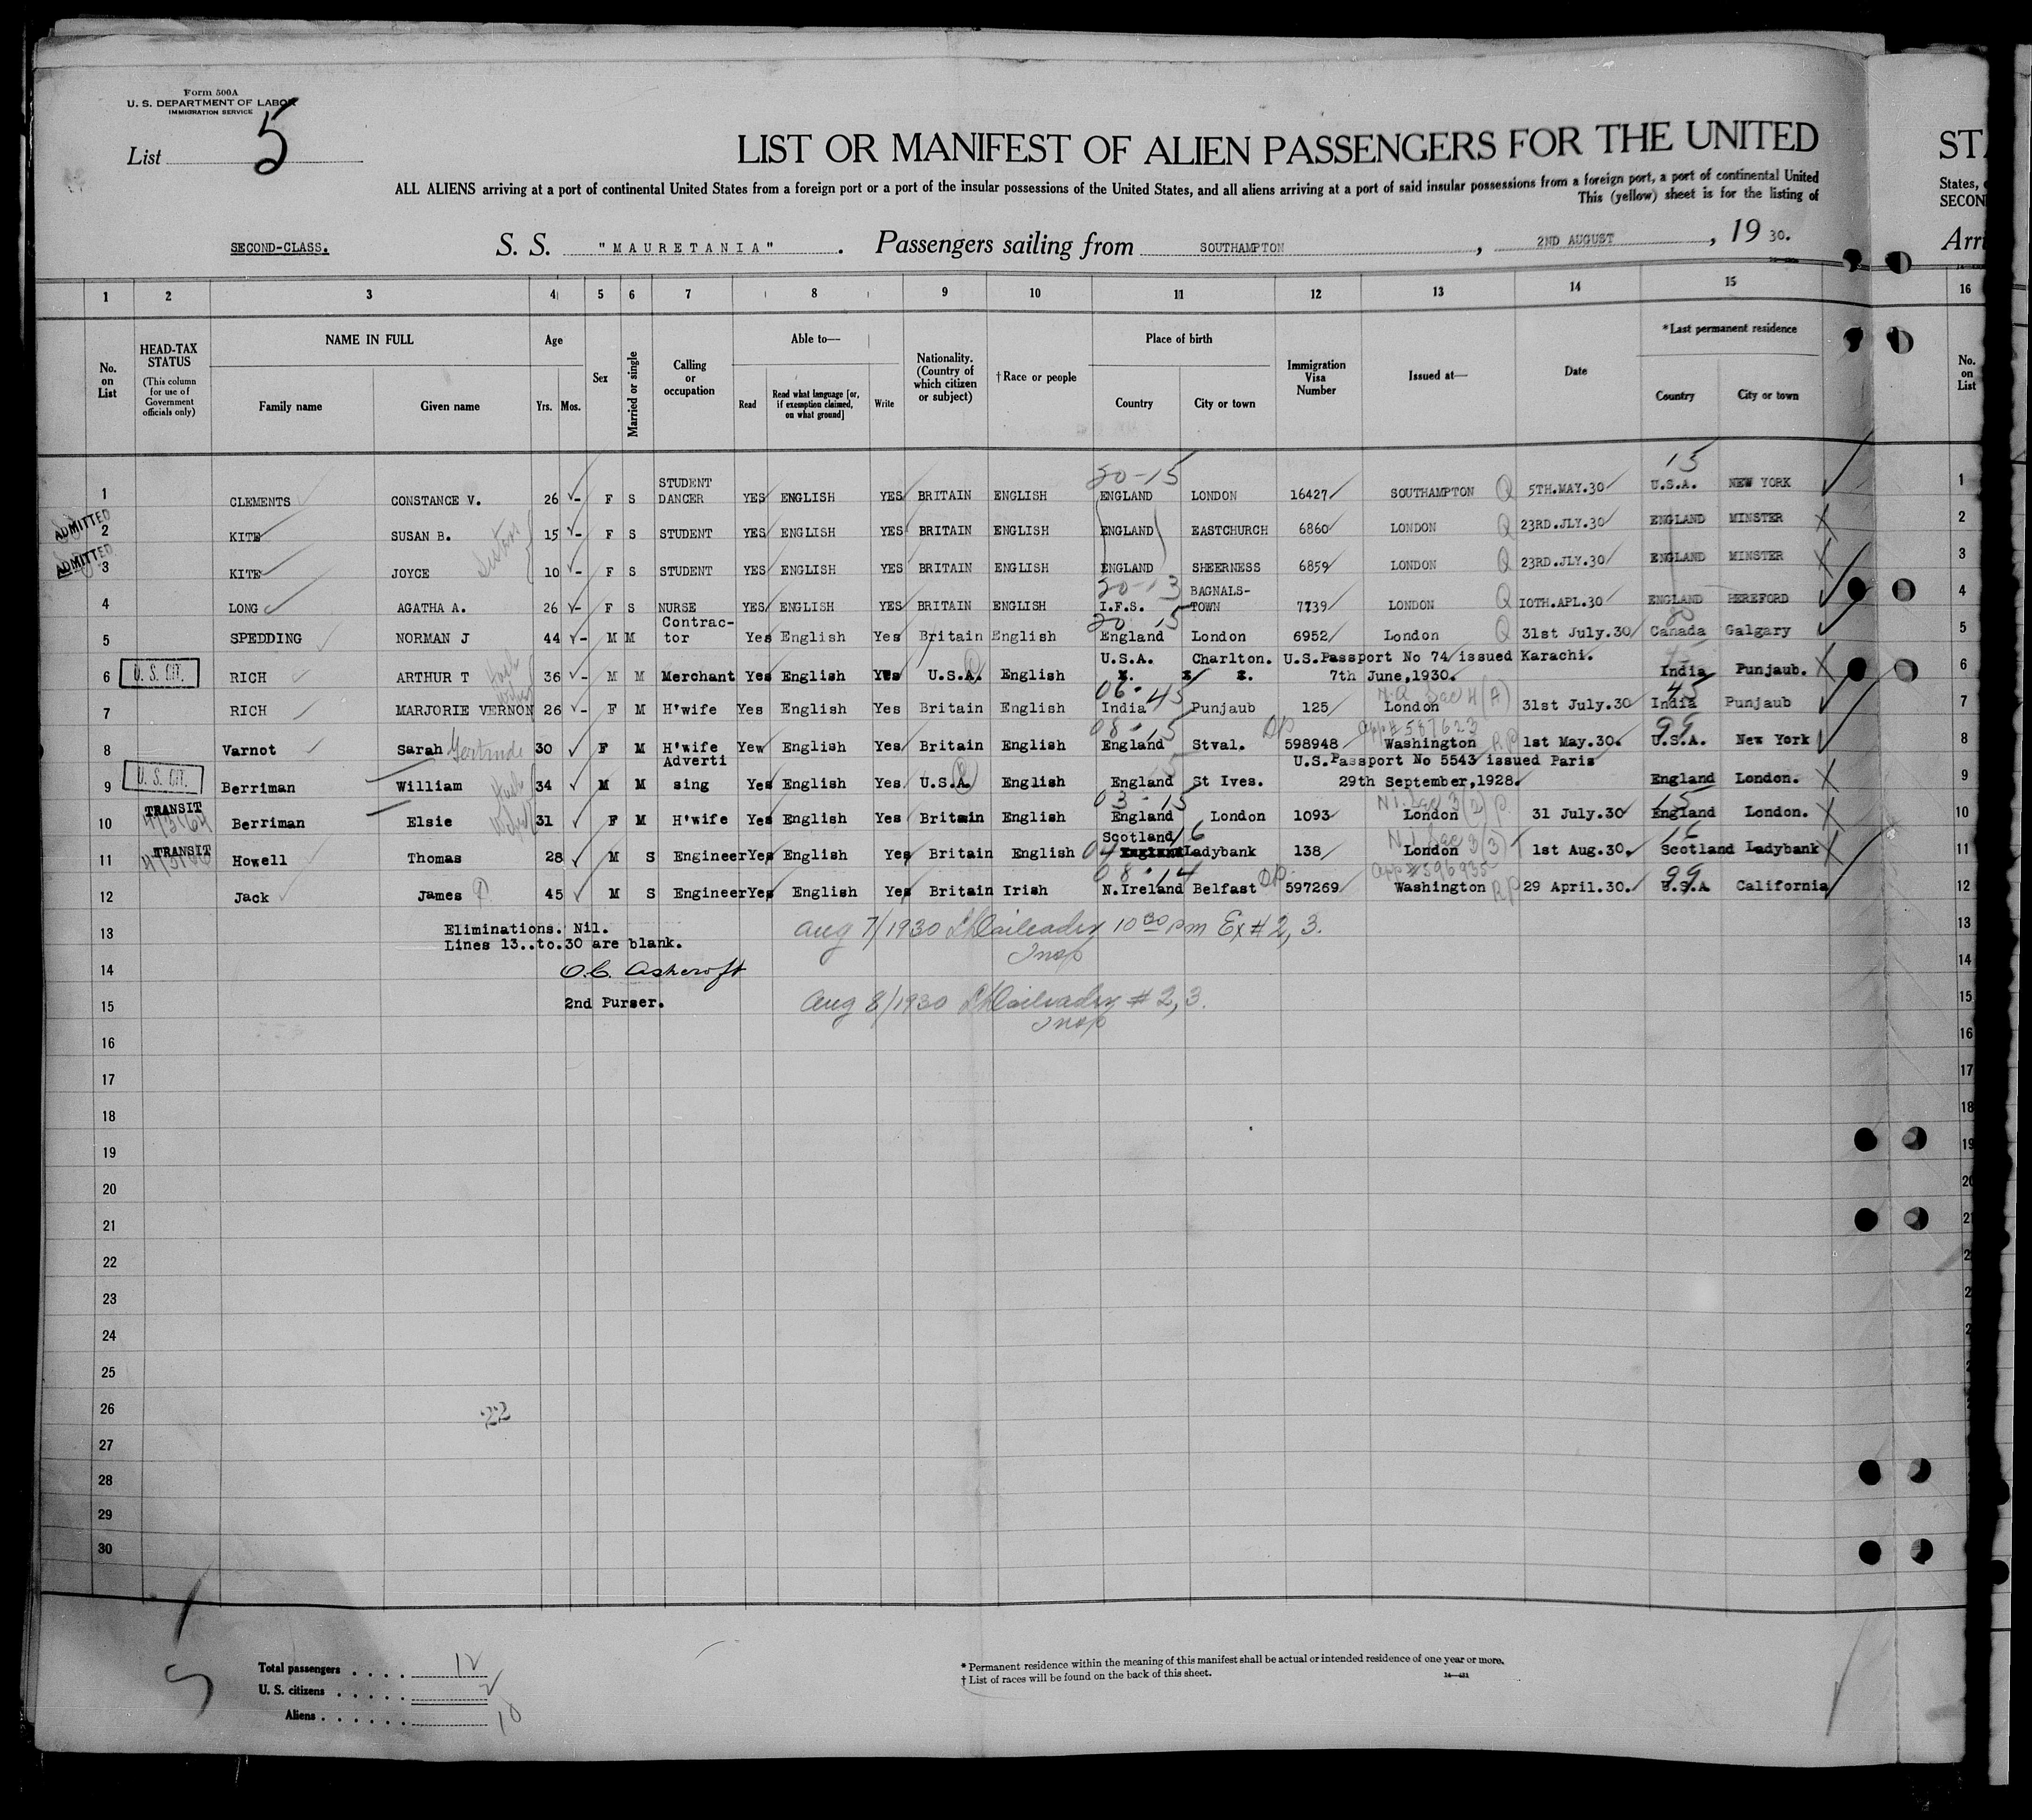 Form 500A
U. S. DEPARTMENT OF LABOR
IMMIGRATION SERVICE
List 5
LIST OR MANIFEST OF ALIEN PASSENGERS FOR THE UNITED
ALL ALIENS arriving at a port of continental United States from a foreign port or a port of the insular possessions of the United States, and all aliens arriving at a port of said insular possessions from a foreign port, a port of continental United
This (yellow) sheet is for the listing of
SECOND-CLASS. S. S. "MAURETANIA". Passengers sailing from SOUTHAMPTON, 2ND AUGUST, 19 30.
1 2 3 4 5 6 7 8 9 10 11 12 13 14 15 16
No. on List
HEAD-TAX STATUS (This column for use of Government officials only)
NAME IN FULL
Family name Given name
Age
Yrs. Mos.
Sex
Married or single
Calling or occupation
Able to—
Read Read what language [or, if exemption claimed, on what ground] Write
Nationality. (Country of which citizen or subject)
†Race or people
Place of birth
Country City or town
Immigration Visa Number
Issued at—
Date
*Last permanent residence
Country City or town
No. on List
20-15 15
1 CLEMENTS CONSTANCE V. 26 - F S STUDENT DANCER YES ENGLISH YES BRITAIN ENGLISH ENGLAND LONDON 16427 SOUTHAMPTON Q 5TH.MAY.30 U.S.A. NEW YORK 1
ADMITTED 2 KITE SUSAN B. 15 - F S STUDENT YES ENGLISH YES BRITAIN ENGLISH ENGLAND EASTCHURCH 6860 LONDON Q 23RD.JLY.30 ENGLAND MINSTER 2
Sisters
ADMITTED 3 KITE JOYCE 10 - F S STUDENT YES ENGLISH YES BRITAIN ENGLISH ENGLAND SHEERNESS 6859 LONDON Q 23RD.JLY.30 ENGLAND MINSTER 3
20-13
4 LONG AGATHA A. 26 - F S NURSE YES ENGLISH YES BRITAIN ENGLISH I.F.S. BAGNALS-TOWN 7739 LONDON Q 10TH.APL.30 ENGLAND HEREFORD 4
20 15
5 SPEDDING NORMAN J 44 - M M Contrac-tor Yes English Yes Britain English England London 6952 London Q 31st July.30 Canada Galgary 5
U. S. CIT. 6 RICH ARTHUR T 36 - M M Merchant Yes English Yes U.S.A. English U.S.A. Charlton. U.S.Passport No 74 issued Karachi. 7th June,1930. India Punjaub. 6
06. 45 45
7 RICH MARJORIE VERNON 26 - F M H'wife Yes English Yes Britain English India Punjaub 125 London 31st July.30 India Punjaub 7
08-15 App # 587623 99
8 Varnot Sarah Gertrude 30 F M H'wife Yew English Yes Britain English England Stval. 598948 Washington RP 1st May.30. U.S.A. New York 8
U. S. CIT. 9 Berriman William 34 M M Adverti sing Yes English Yes U.S.A. English England St Ives. U.S.Passport No 5543 issued Paris 29th September,1928. England London. 9
03-15 15
TRANSIT 10 Berriman Elsie 31 F M H'wife Yes English Yes Britain English England London 1093 London 31 July.30 England London. 10
TRANSIT 11 Howell Thomas 28 M S Engineer Yes English Yes Britain English Scotland Ladybank 138 London 1st Aug.30. Scotland Ladybank 11
08-14 App # 596935 99
12 Jack James 45 M S Engineer Yes English Yes Britain Irish N.Ireland Belfast 597269 Washington RP 29 April.30. U.S.A California 12
13 Eliminations. Nil. 13
Lines 13..to.30 are blank.
Aug 7/1930 10 30 pm Ex # 2, 3.
Insp
14 O.C. Ashcroft 14
15 2nd Purser. 15
Aug 8/1930 # 2, 3.
Insp
16 16
17 17
18 18
19 19
20 20
21 21
22
23
24
25
26 22
27
28
29
30
Total passengers . . . . 12
U. S. citizens . . . . . 2
Aliens . . . . . . 10
* Permanent residence within the meaning of this manifest shall be actual or intended residence of one year or more.
† List of races will be found on the back of this sheet.